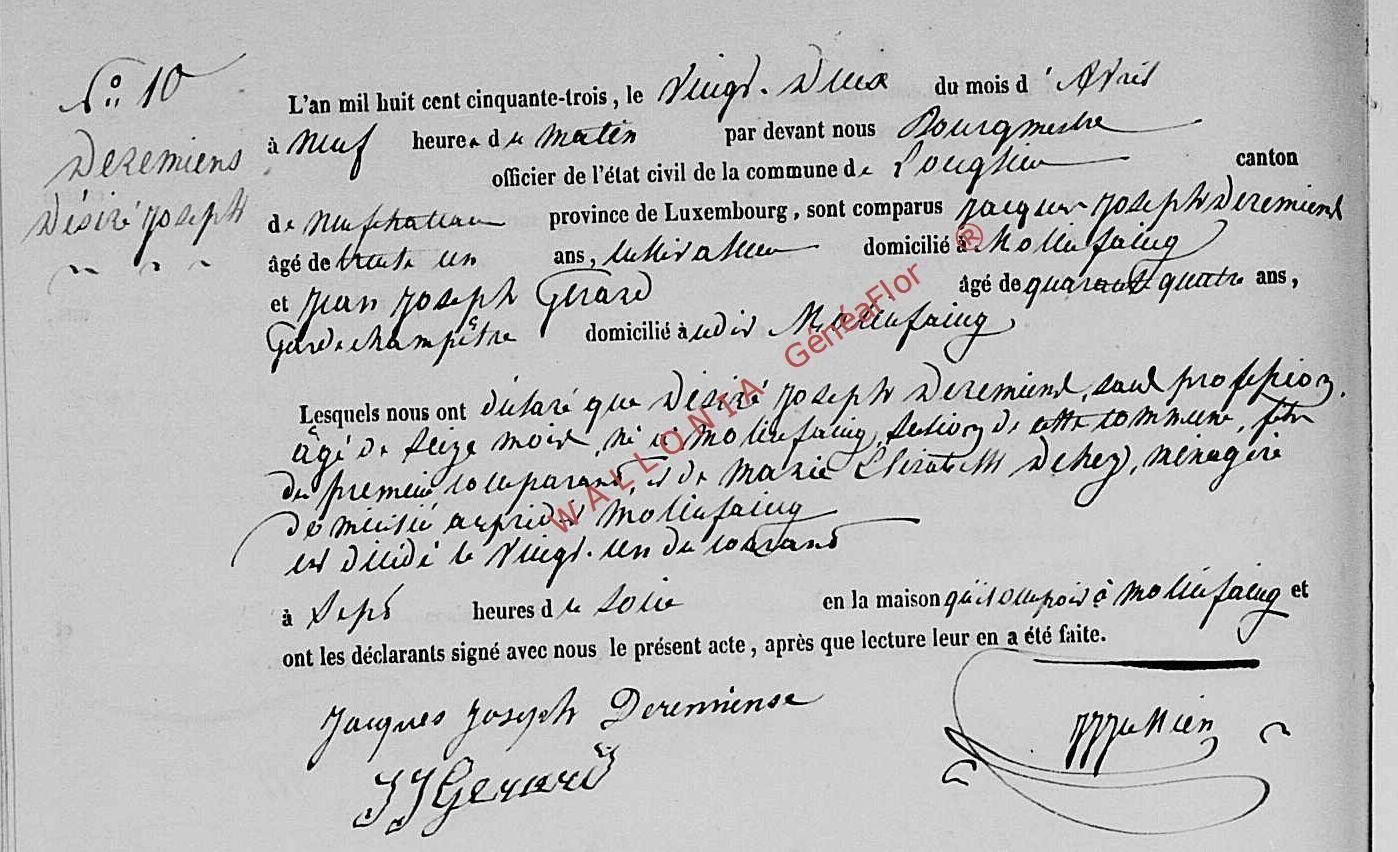 N° 10
Deremiens
Désiré Joseph
L'an mil huit cent cinquante-trois, le Vingt-Deux du mois d'Avril
à Neuf heures du matin par devant nous Bourgmestre
officier de l'état civil de la commune de Longlier canton
de Neufchateau province de Luxembourg, sont comparus Jacques Joseph Deremiens
âgé de trente un ans, cultivateur domicilié à Molinfaing
et Jean Joseph Gerard âgé de quarante quatre ans,
Garde champêtre domicilié audit Molinfaing
Lesquels nous ont déclaré que Désiré Joseph Deremiens, sans profession,
âgé de seize mois, né à Molinfaing, section de cette commune, fils
du premier comparant, et de Marie Elisabeth Dehez, ménagère
domicilié audit Molinfaing
est décédé le vingt-un du courant
à Sept heures du soir en la maison qu'il occupoit à Molinfaing et
ont les déclarants signé avec nous le présent acte, après que lecture leur en a été faite.
Jacques Joseph Deremiense
JJ Gerard
WALLONIA GénéaFlor ®